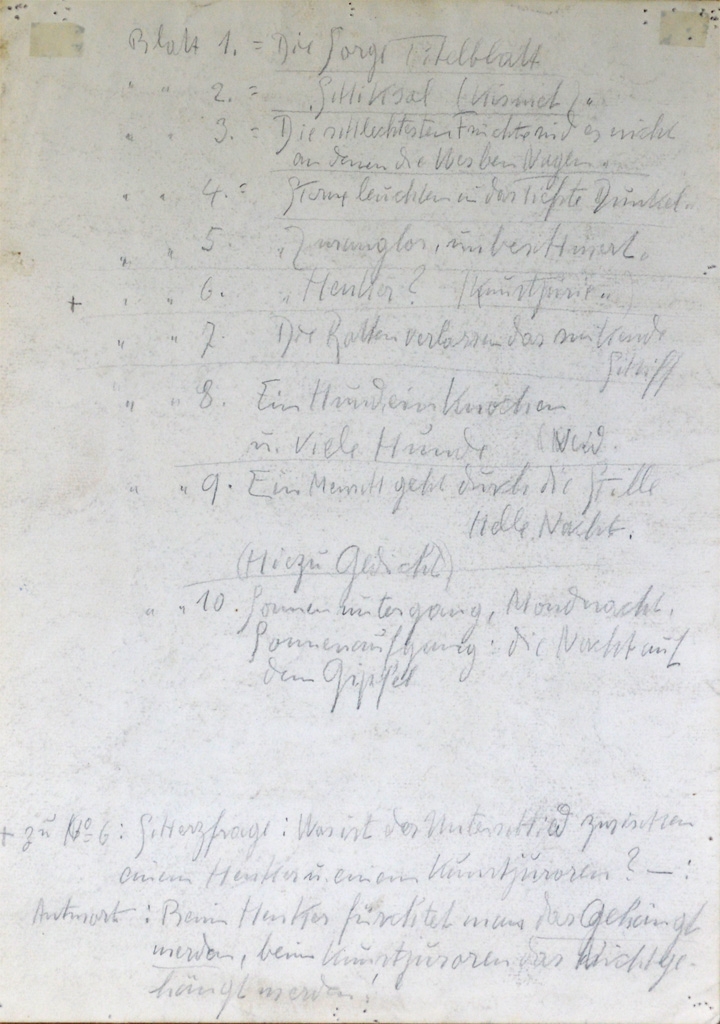 Blatt 1. = Die Sorge Titelblatt
" " 2. = Schiksal
" " 3. = Die schlechtesten Früchte sind es nicht
an denen die Wespen Nagen.
" " 4. = Sterne leuchten in das tiefste Dunkel.
" " 5. "Zwanglos, unbeschwert.
+ " " 6. "Henker? Kunstjurie".
" " 7. Die Ratten verlassen das sinkende
Schiff
" " 8. Ein Hund ein Knochen
u. viele Hunde (Neid.
" " 9. Ein Mensch geht durch die Stille
Helle Nacht.
(Hiezu Gedicht)
" " 10. Sonnenuntergang, Mondnacht.
Sonnenaufgang: die Nacht auf
dem Gipfel
+ zu No 6: Scherzfrage: Was ist der Unterschied zwischen
einem Henker u. einem Kunstjuroren? — :
Antwort: Beim Henker fürchtet man das Gehängt
werden, beim Kunstjuroren das Nichtge-
hängt werden!